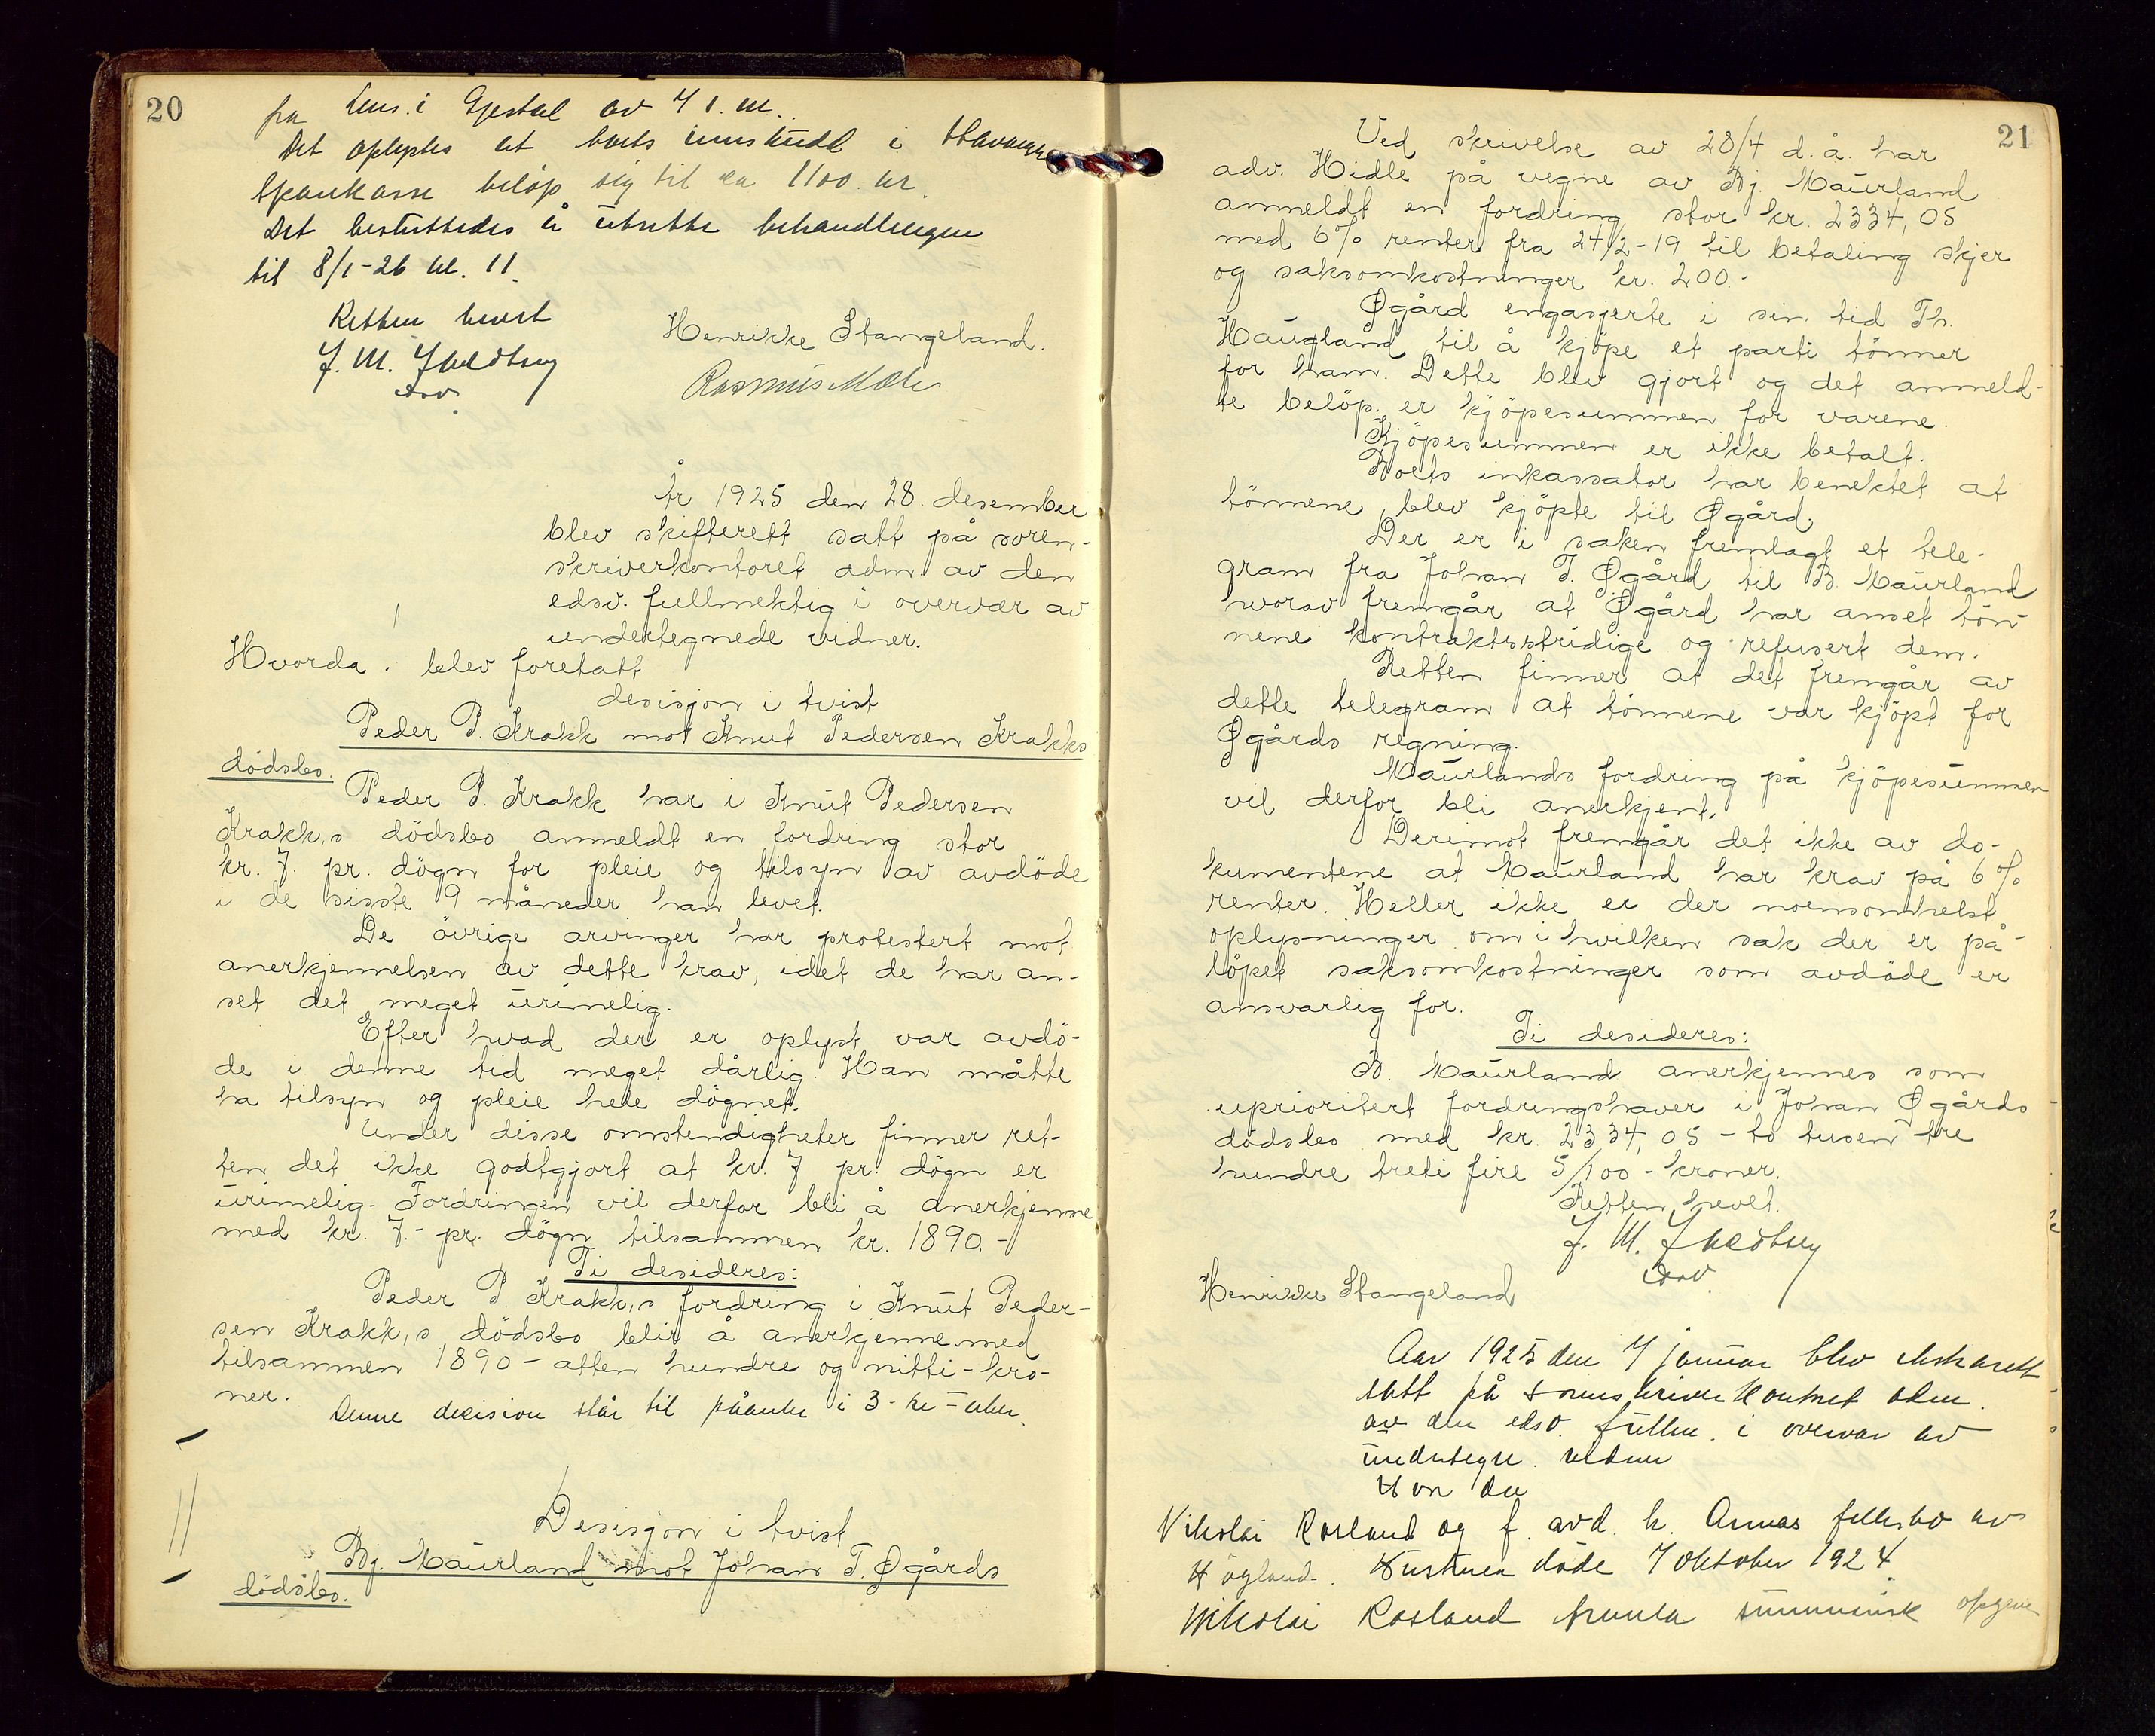 20
fra lens. i Gjestal av 7 d. m.
Det oplystes at boets innskudd i Stavanger
Sparekasse beløp sig til ca 1100 kr.
Det besluttedes å utsette behandlingen
til 8/1-26 kl. 11.
Retten hevet
Henrikke Stangeland.
J. M.
Rasmus
edsv.
År 1925 den 28. desember
blev skifterett satt på soren-
skriverkontoret adm. av den
edsv. fullmektig i overvær av
undertegnede vidner.
Hvorda. blev foretatt
desisjon i tvist
Peder P. Krakk mot Knut Pedersen Krakks
dödsbo.
Peder P. Krakk har i Knut Pedersen
Krakk,s dödsbo anmeldt en fordring stor
kr. 7. pr. dögn for pleie og tilsyn av avdöde
i de sisste 9 måneder han levet.
De övrige arvinger har protestert mot
anerkjennelsen av dette krav, idet de har an-
set det meget urimelig.
Efter hvad der er oplyst var avdö-
de i denne tid meget dårlig. Han måtte
ha tilsyn og pleie hele dögnet.
Under disse omstendigheter finner ret-
ten det ikke godtgjort at kr. 7 pr. dögn er
urimelig. Fordringen vil derfor bli å anerkjenne
med kr. 7.- pr. dögn tilsammen kr. 1890.-
Ti desideres:
Peder P. Krakk,s fordring i Knut Peder-
sen Krakk,s dödsbo blir å anerkjenne med
tilsammen 1890 - atten hundre og nitti - kro-
ner.
Denne decision står til påanke i 3 - tre - uker.
Desisjon i tvist
Bj. Maurland mot Johan T. Øgårds
dödsbo.
21
Ved skrivelse av 28/4 d.å. har
adv. Hidle på vegne av Bj. Maurland
anmeldt en fordring stor kr. 2334,05
med 6% renter fra 24/2-19 til betaling skjer
og saksomkostninger kr. 200.-
Øgård engasjerte i sin tid Th.
Haugland til å kjöpe et parti tönner
for ham. Dette blev gjort og det anmeld-
te belöp er kjöpesummen for varene.
Kjöpesummen er ikke betalt.
Boets inkassator har benektet at
tönnene blev kjöpte til Øgård.
Der er i saken fremlagt et tele-
gram fra Johan T. Øgård til B. Maurland
hvorav fremgår at Øgård har anset tön-
nene kontraktsstridige og refusert dem.
Retten finner at det fremgår av
dette telegram at tönnene var kjöpt for
Øgårds regning.
Maurlands fordring på kjöpesummen
vil derfor bli anerkjent.
Derimot fremgår det ikke av do-
kumentene at Maurland har krav på 6%
renter. Heller ikke er der noensomhelst
oplysninger om i hvilken sak der er på-
löpet saksomkostninger som avdöde er
ansvarlig for.
Ti desideres:
B. Maurland anerkjennes som
uprioritert fordringshaver i Johan Øgårds
dödsbo med kr. 2334,05 - to tusen tre
hundre treti fire 5/100 - kroner.
Retten hevet.
J. M.
edsv.
Henrikke Stangeland
Aar 1925 den 7 januar blev skifterett
satt på sorenskriverkontoret adm.
av den edsv. fullm. i overvær av
undertegn. vidner
Hvor da
Nikolai Rosland og f. avd. h. Annas fellesbo av
Høgland. Hustruen døde 7 oktober 1924.
Nikolai Rosland fremla summarisk opgave